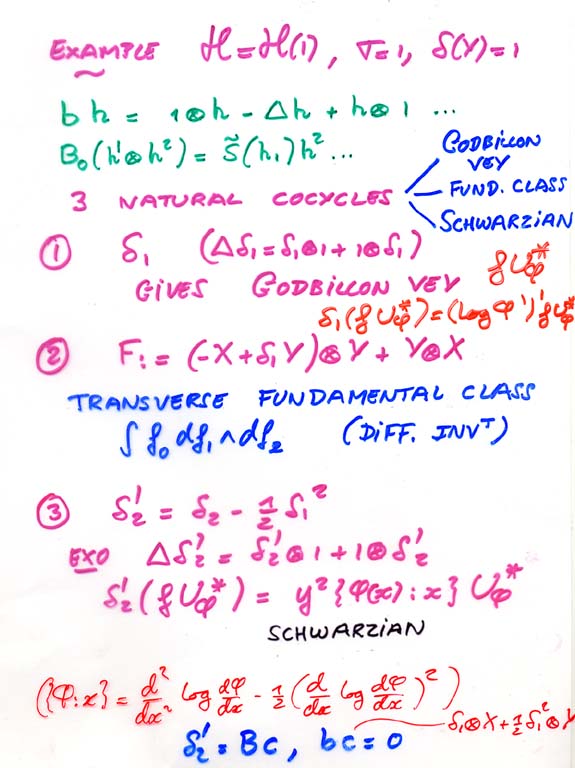 EXAMPLE ℋ=ℋ(1), σ=1, δ(Y)=1
b h = 1⊗h - Δh + h⊗1 ...
B₀(h¹⊗h²) = S̃(h₁)h² ...
3 NATURAL COCYCLES
GODBILLON VEY
FUND. CLASS
SCHWARZIAN
① δ₁ (Δδ₁=δ₁⊗1+1⊗δ₁)
GIVES GODBILLON VEY
f U*φ
δ₁(f U*φ)=(log φ')' f U*φ
② F: = (-X+δ₁Y)⊗Y + Y⊗X
TRANSVERSE FUNDAMENTAL CLASS
∫ f₀ df₁ ∧ df₂ (DIFF. INVᵀ)
③ δ₂' = δ₂ - ½ δ₁²
EXO Δδ₂' = δ₂'⊗1 + 1⊗δ₂'
δ₂'(f U*φ) = y²{φ(x):x} U*φ
SCHWARZIAN
({φ:x} = d²/dx² log dφ/dx - ½(d/dx log dφ/dx)²)
δ₁⊗X+½δ₁²⊗Y
δ₂' = Bc, bc=0